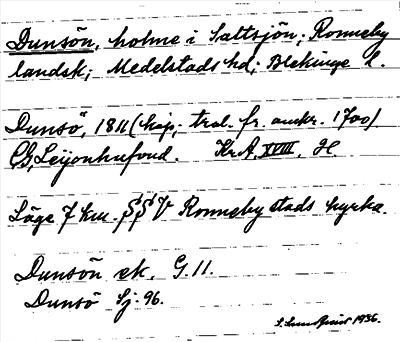 Dunsön, holme i Saltsjön; Ronneby
landsk; Medelstads hd; Blekinge l.
Dunsö, 1811 (kop; trol. fr. omkr. 1700)
CG Leijonhufvud. KrA, XVIII. H
Läge 7 km. SSV Ronneby stads kyrka.
Dunsön ek. G. 11.
Dunsö Sj. 96.
S. Lundqvist 1936.